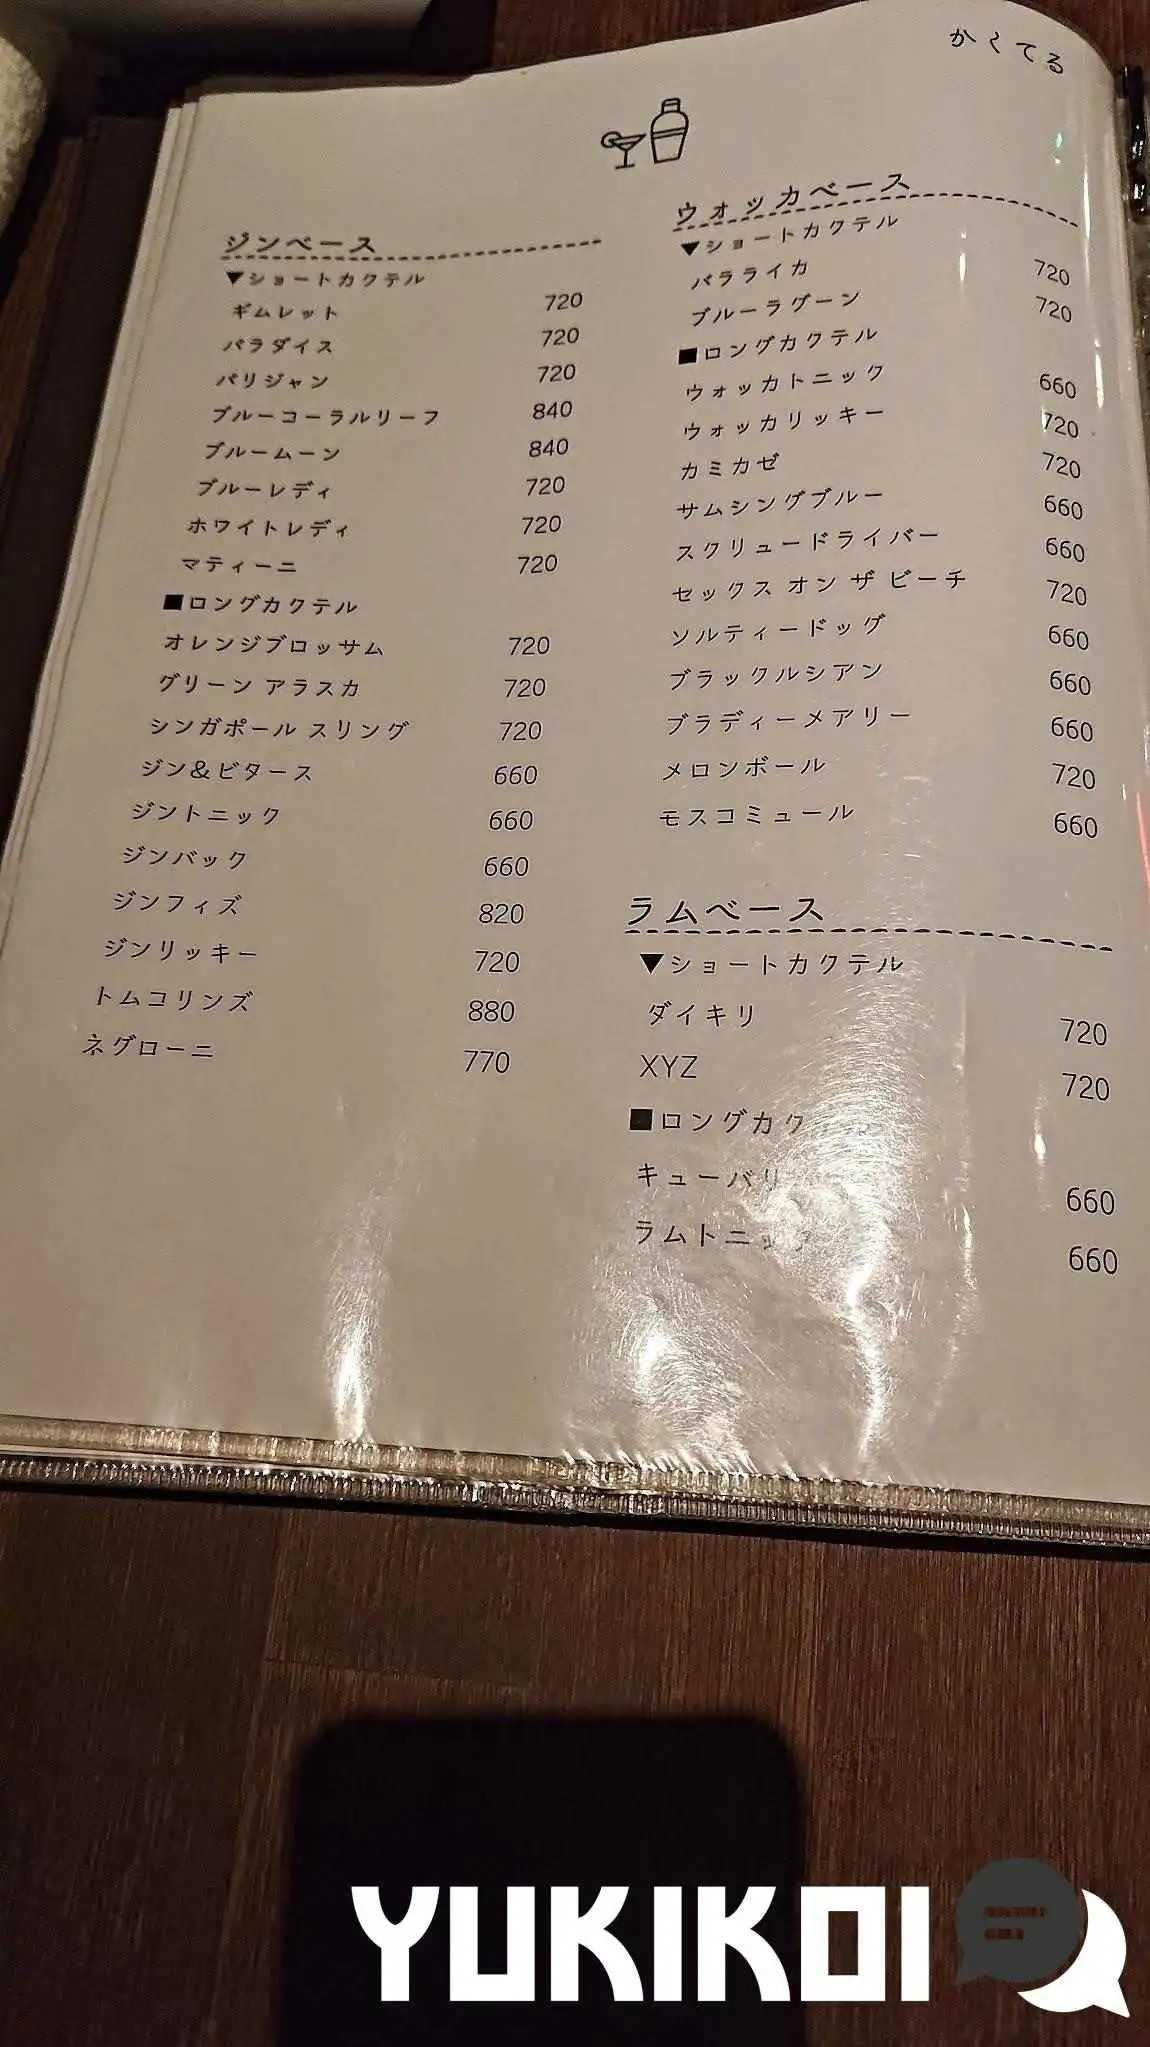 かくてる
ジンベース
▼ショートカクテル
ギムレット 720
パラダイス 720
パリジャン 720
ブルーコーラルリーフ 840
ブルームーン 840
ブルーレディ 720
ホワイトレディ 720
マティーニ 720
■ロングカクテル
オレンジブロッサム 720
グリーン アラスカ 720
シンガポール スリング 720
ジン&ビタース 660
ジントニック 660
ジンバック 660
ジンフィズ 820
ジンリッキー 720
トムコリンズ 880
ネグローニ 770
ウォッカベース
▼ショートカクテル
バラライカ 720
ブルーラグーン 720
■ロングカクテル
ウォッカトニック 660
ウォッカリッキー 720
カミカゼ 720
サムシングブルー 660
スクリュードライバー 660
セックス オン ザ ビーチ 720
ソルティードッグ 660
ブラックルシアン 660
ブラディーメアリー 660
メロンボール 720
モスコミュール 660
ラムベース
▼ショートカクテル
ダイキリ 720
XYZ 720
■ロングカク
キューバリ 660
ラムトニック 660
YUKIKOI